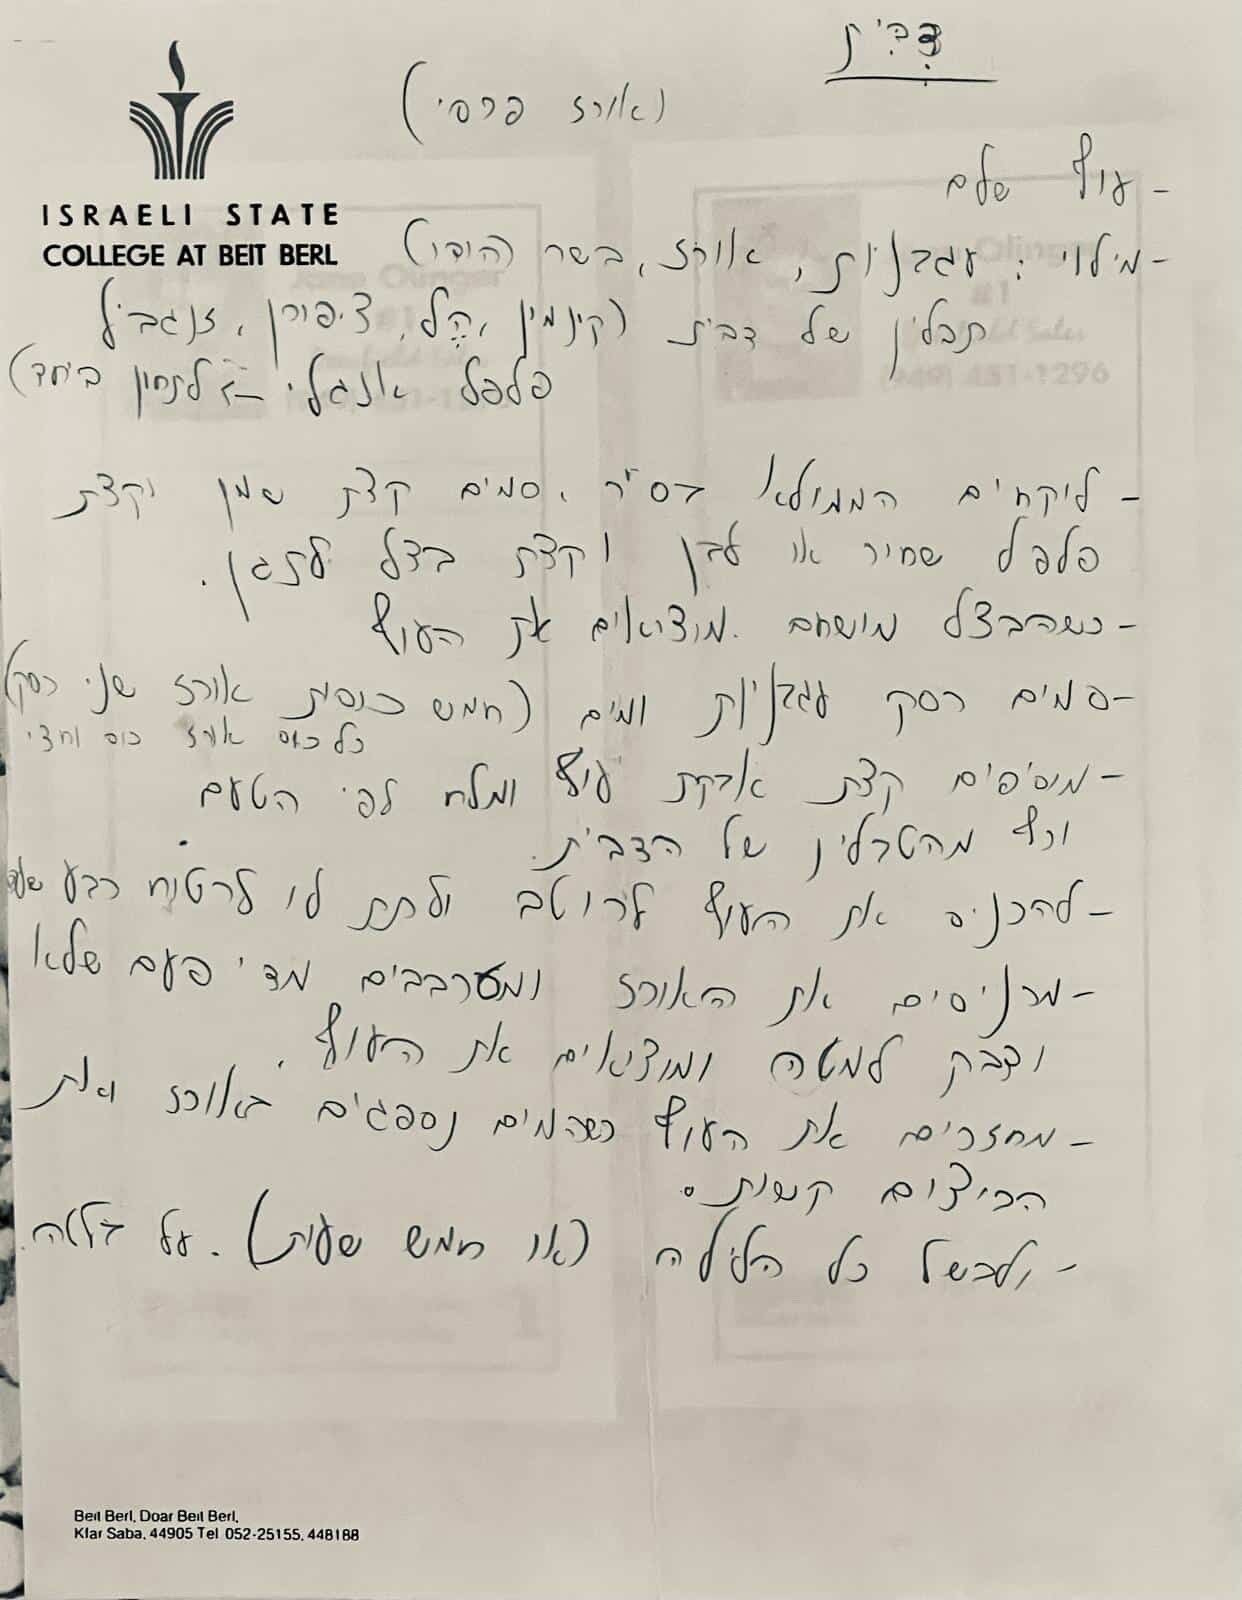 טבית
(אורז פרסי)
ISRAELI STATE
COLLEGE AT BEIT BERL
- עוף שלם
- מילוי: עגבניות, אורז, בשר (הודו)
תבלין של טבית (קינמין, הל, ציפורן, זנגביל
פלפל אנגלי -> לתחון ביחד)
- לוקחים הממולא בסיר. שמים קצת שמן וקצת
פלפל שחור או לבן וקצת בצל לתגן.
- כשהבצל מושחם. מוציאים את העוף
- שמים רסק עגבניות ומים (חמש כוסות אורז שני רסק)
כל כוס אורז כוס וחצי
- מוסיפים קצת אבקת עוף ומלח לפי הטעם
וכף מהטבלין של הטבית.
- להכניס את העוף לרוטב ולתת לו לרטוח רבע שעה
- מכניסים את האורז ומערבבים מדי פעם שלא
ידבק למטה ומוציאים את העוף.
- מחזרים את העוף כשהמים נספגים באורז ואת
הביצים קשות.
- ולבשל כל הלילה (או חמש שעות). על פלטה.
Beit Berl, Doar Beit Berl,
Kfar Saba, 44905 Tel 052-25155, 448188